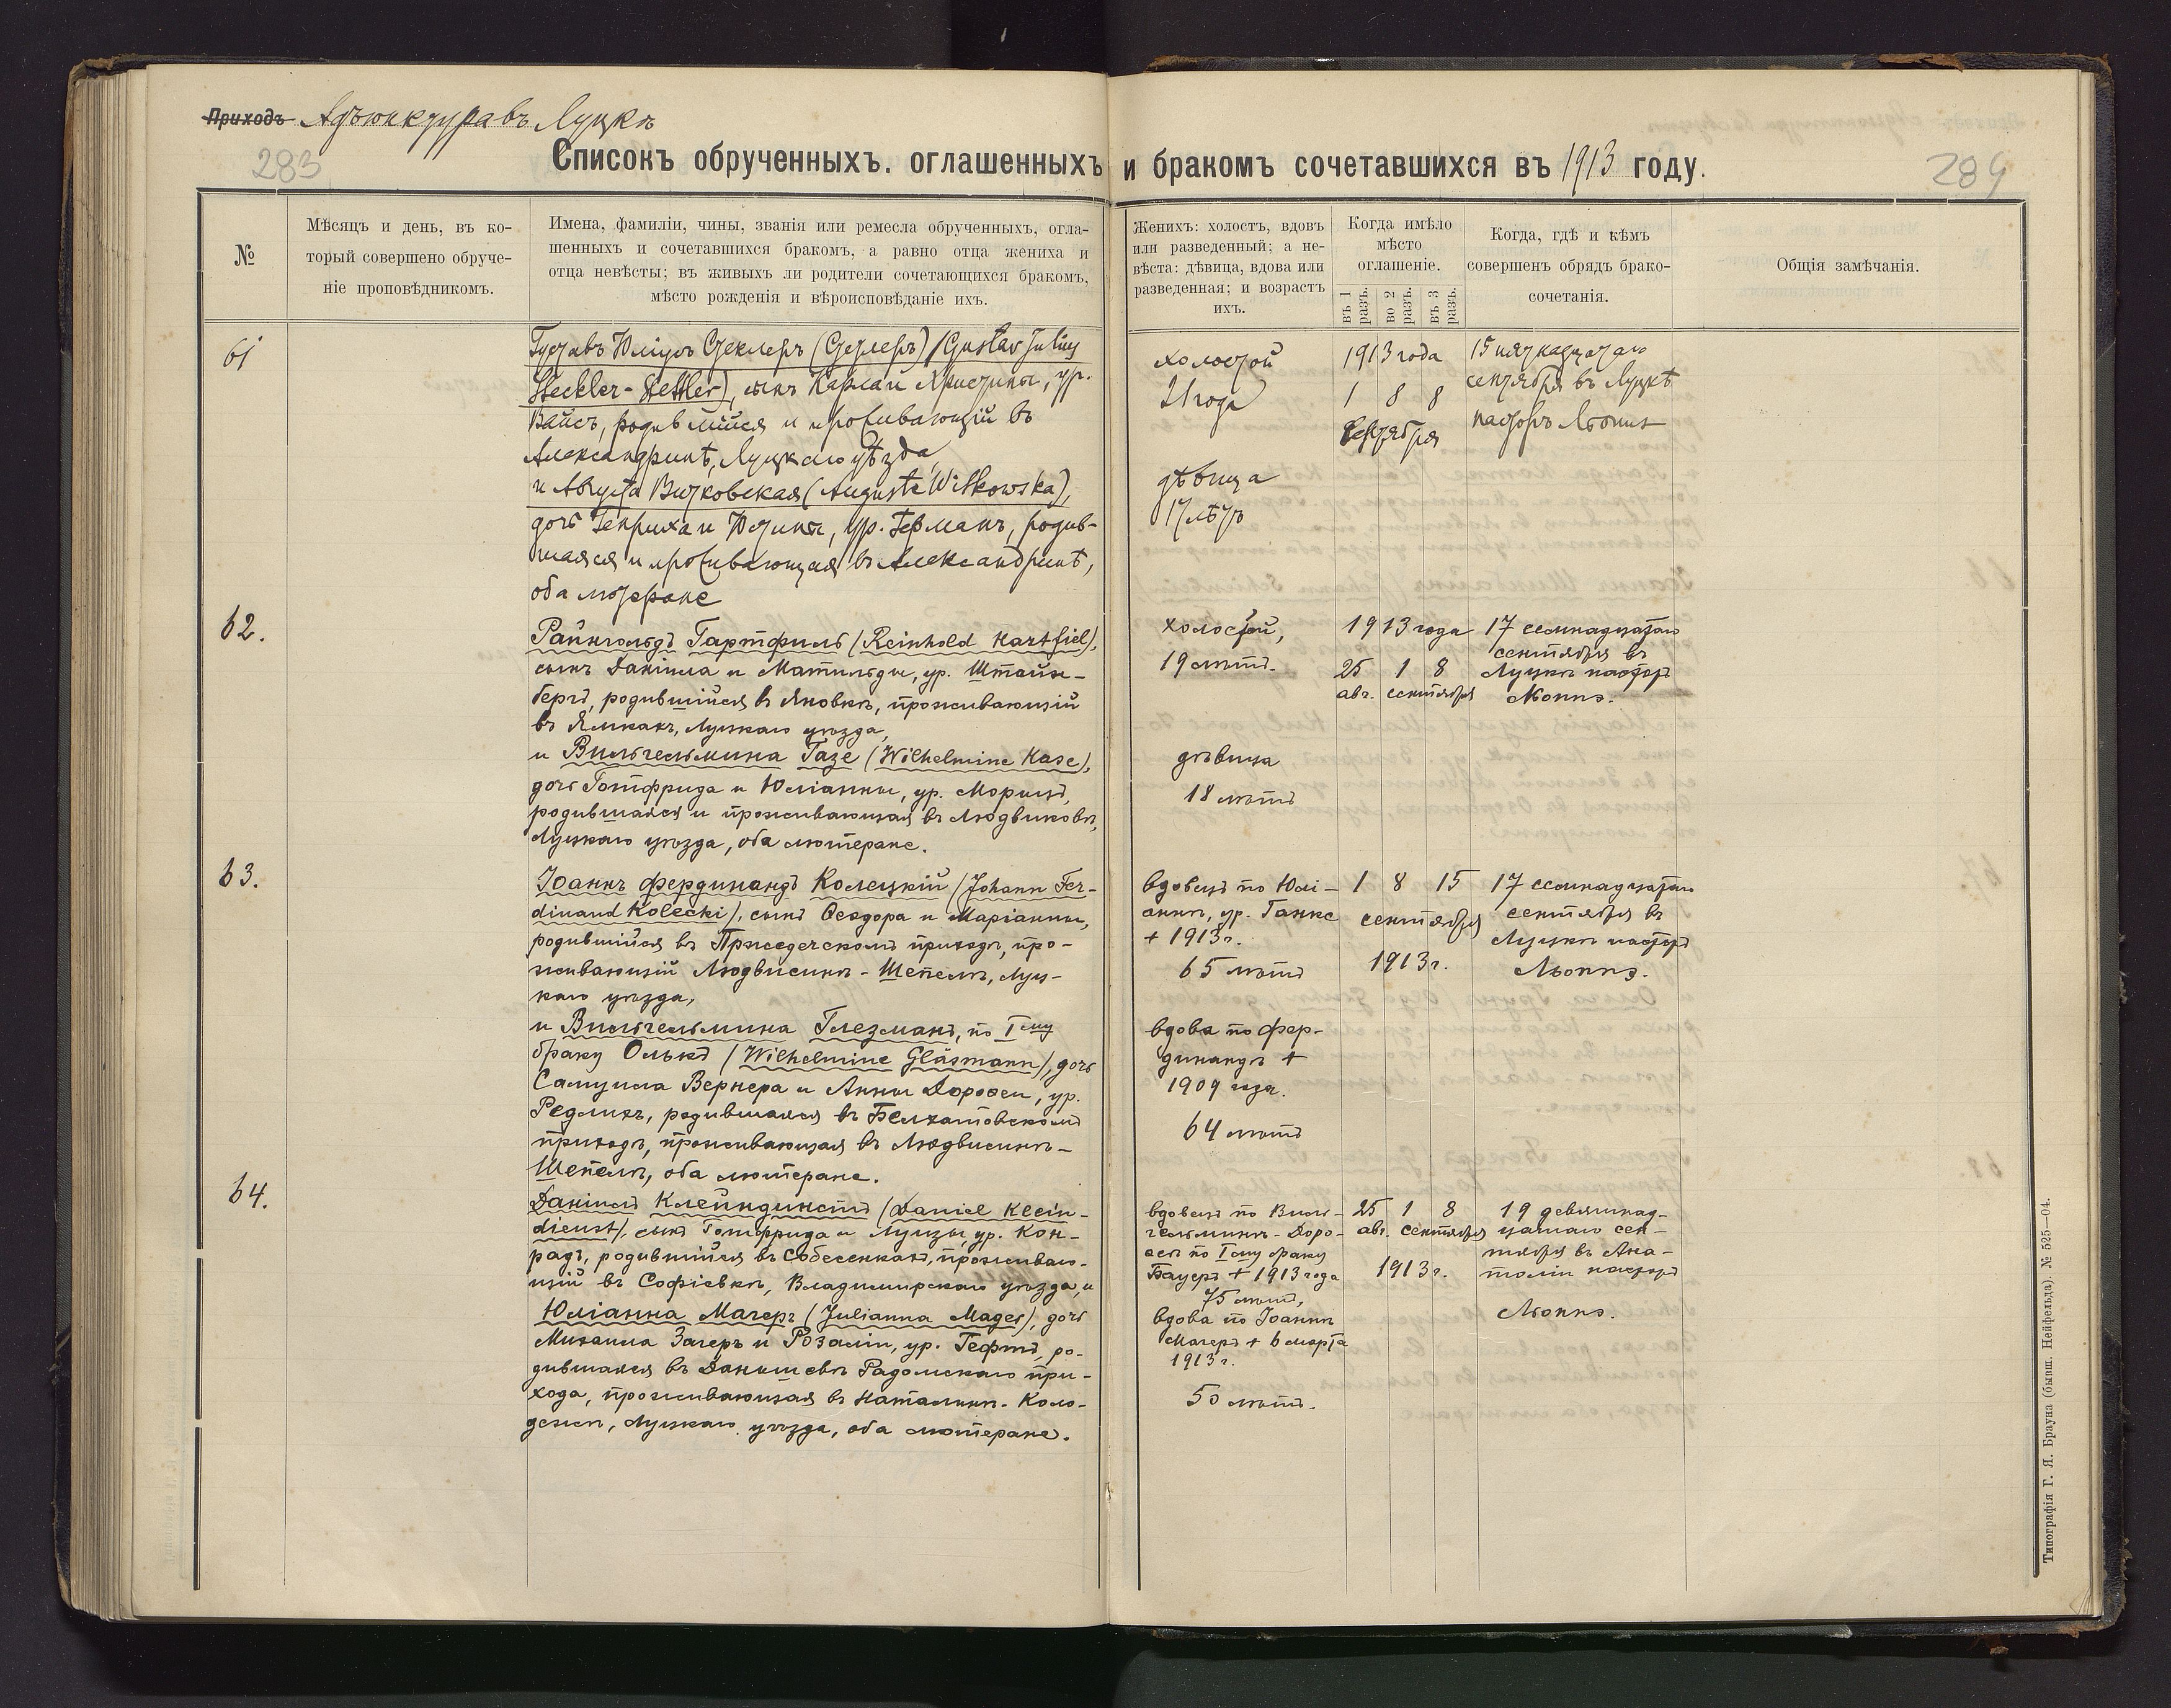 Приходъ Адъюнктура въ Луцкѣ
283
284
Списокъ обрученныхъ. оглашенныхъ и бракомъ сочетавшихся въ 1913 году.
№
Мѣсяцъ и день, въ ко-
торый совершено обруче-
ніе проповѣдникомъ.
Имена, фамиліи, чины, званія или ремесла обрученныхъ, огла-
шенныхъ и сочетавшихся бракомъ, а равно отца жениха и
отца невѣсты; въ живыхъ ли родители сочетающихся бракомъ,
мѣсто рожденія и вѣроисповѣданіе ихъ.
Женихъ: холостъ, вдовъ
или разведенный; а не-
вѣста: дѣвица, вдова или
разведенная; и возрастъ
ихъ.
Когда имѣло
мѣсто
оглашеніе.
въ 1 разъ.
во 2 разъ.
въ 3 разъ.
Когда, гдѣ и кѣмъ
совершенъ обрядъ брако-
сочетанія.
Общія замѣчанія.
61
Густавъ Юліусъ Стеклеръ (Стетлеръ) (Gustav Julius
Steckler-Stettler), сынъ Карла и Христины, ур.
Вайсъ, родившійся и проживающій въ
Александринѣ, Луцкаго уѣзда,
и Августа Витковская (Auguste Witkowska),
дочь Генриха и Юстины, ур. Германъ, родив-
шаяся и проживающая въ Александринѣ,
оба лютеране
холостой
21 года
дѣвица
17 лѣтъ
1913 года
1 8 8
Сентября
15 пятнадцатаго
сентября въ Луцкѣ
пасторъ Лѣппъ
62.
Райнгольдъ Гартфиль (Reinhold Hartfiel),
сынъ Даніила и Матильды, ур. Штайн-
бергъ, родившійся въ Яновкѣ, проживающій
въ Ямкахъ, Луцкаго уѣзда,
и Вильгельмина Газе (Wilhelmine Hase),
дочь Готфрида и Юліанны, ур. Морицъ,
родившаяся и проживающая въ Людвиковѣ,
Луцкаго уѣзда, оба лютеране.
холостой,
19 лѣтъ.
дѣвица
18 лѣтъ
1913 года
25 1 8
авг. сентября
17 семнадцатаго
сентября въ
Луцкѣ пасторъ
63.
Іоаннъ Фердинандъ Колецкій (Johann Fer-
dinand Kolecki), сынъ Ѳеодора и Маріанны,
родившійся въ Пржедечскомъ приходѣ, про-
живающій Людвисинъ-Шепель, Луц-
каго уѣзда,
и Вильгельмина Глезманъ, по Iму
браку Олькъ (Wilhelmine Gläsmann), дочь
Самуила Вернера и Анны Доротеи, ур.
Редлихъ, родившаяся въ Белхатовскомъ
приходѣ, проживающая въ Людвисинъ-
Шепель, оба лютеране.
вдовецъ по Юлі-
аннѣ, ур. Ганке
+ 1913 г.
65 лѣтъ
вдова по Фер-
динандѣ +
1909 года.
64 лѣтъ
1 8 15
сентября
1913 г.
17 семнадцатаго
сентября въ
Луцкѣ пасторъ
64.
Даніилъ Клейндинстъ (Daniel Klein-
dienst), сынъ Готфрида и Луизы, ур. Кон-
радъ, родившійся въ Собесенкахъ, проживаю-
щій въ Софіевкѣ, Владимирскаго уѣзда, и
Юліанна Магеръ (Julianna Mager), дочь
Михаила Загеръ и Розаліи, ур. Гефтъ, ро-
дившаяся въ Данишевѣ Радомскаго при-
хода, проживающая въ Наталинъ-Коло-
дежѣ, Луцкаго уѣзда, оба лютеране.
вдовецъ по Виль-
гельминѣ-Доро-
ѳеѣ по Iму браку
Бауеръ + 1913 года
75 лѣтъ,
вдова по Іоаннѣ
Магеръ + 6 марта
1913 г.
50 лѣтъ.
25 1 8
авг. сентября
1913 г.
19 девятнад-
цатаго сен-
тября въ Ана-
толіи пасторъ
Типографія Г. Я. Брауна (бывш. Нейфельда). № 525—04.